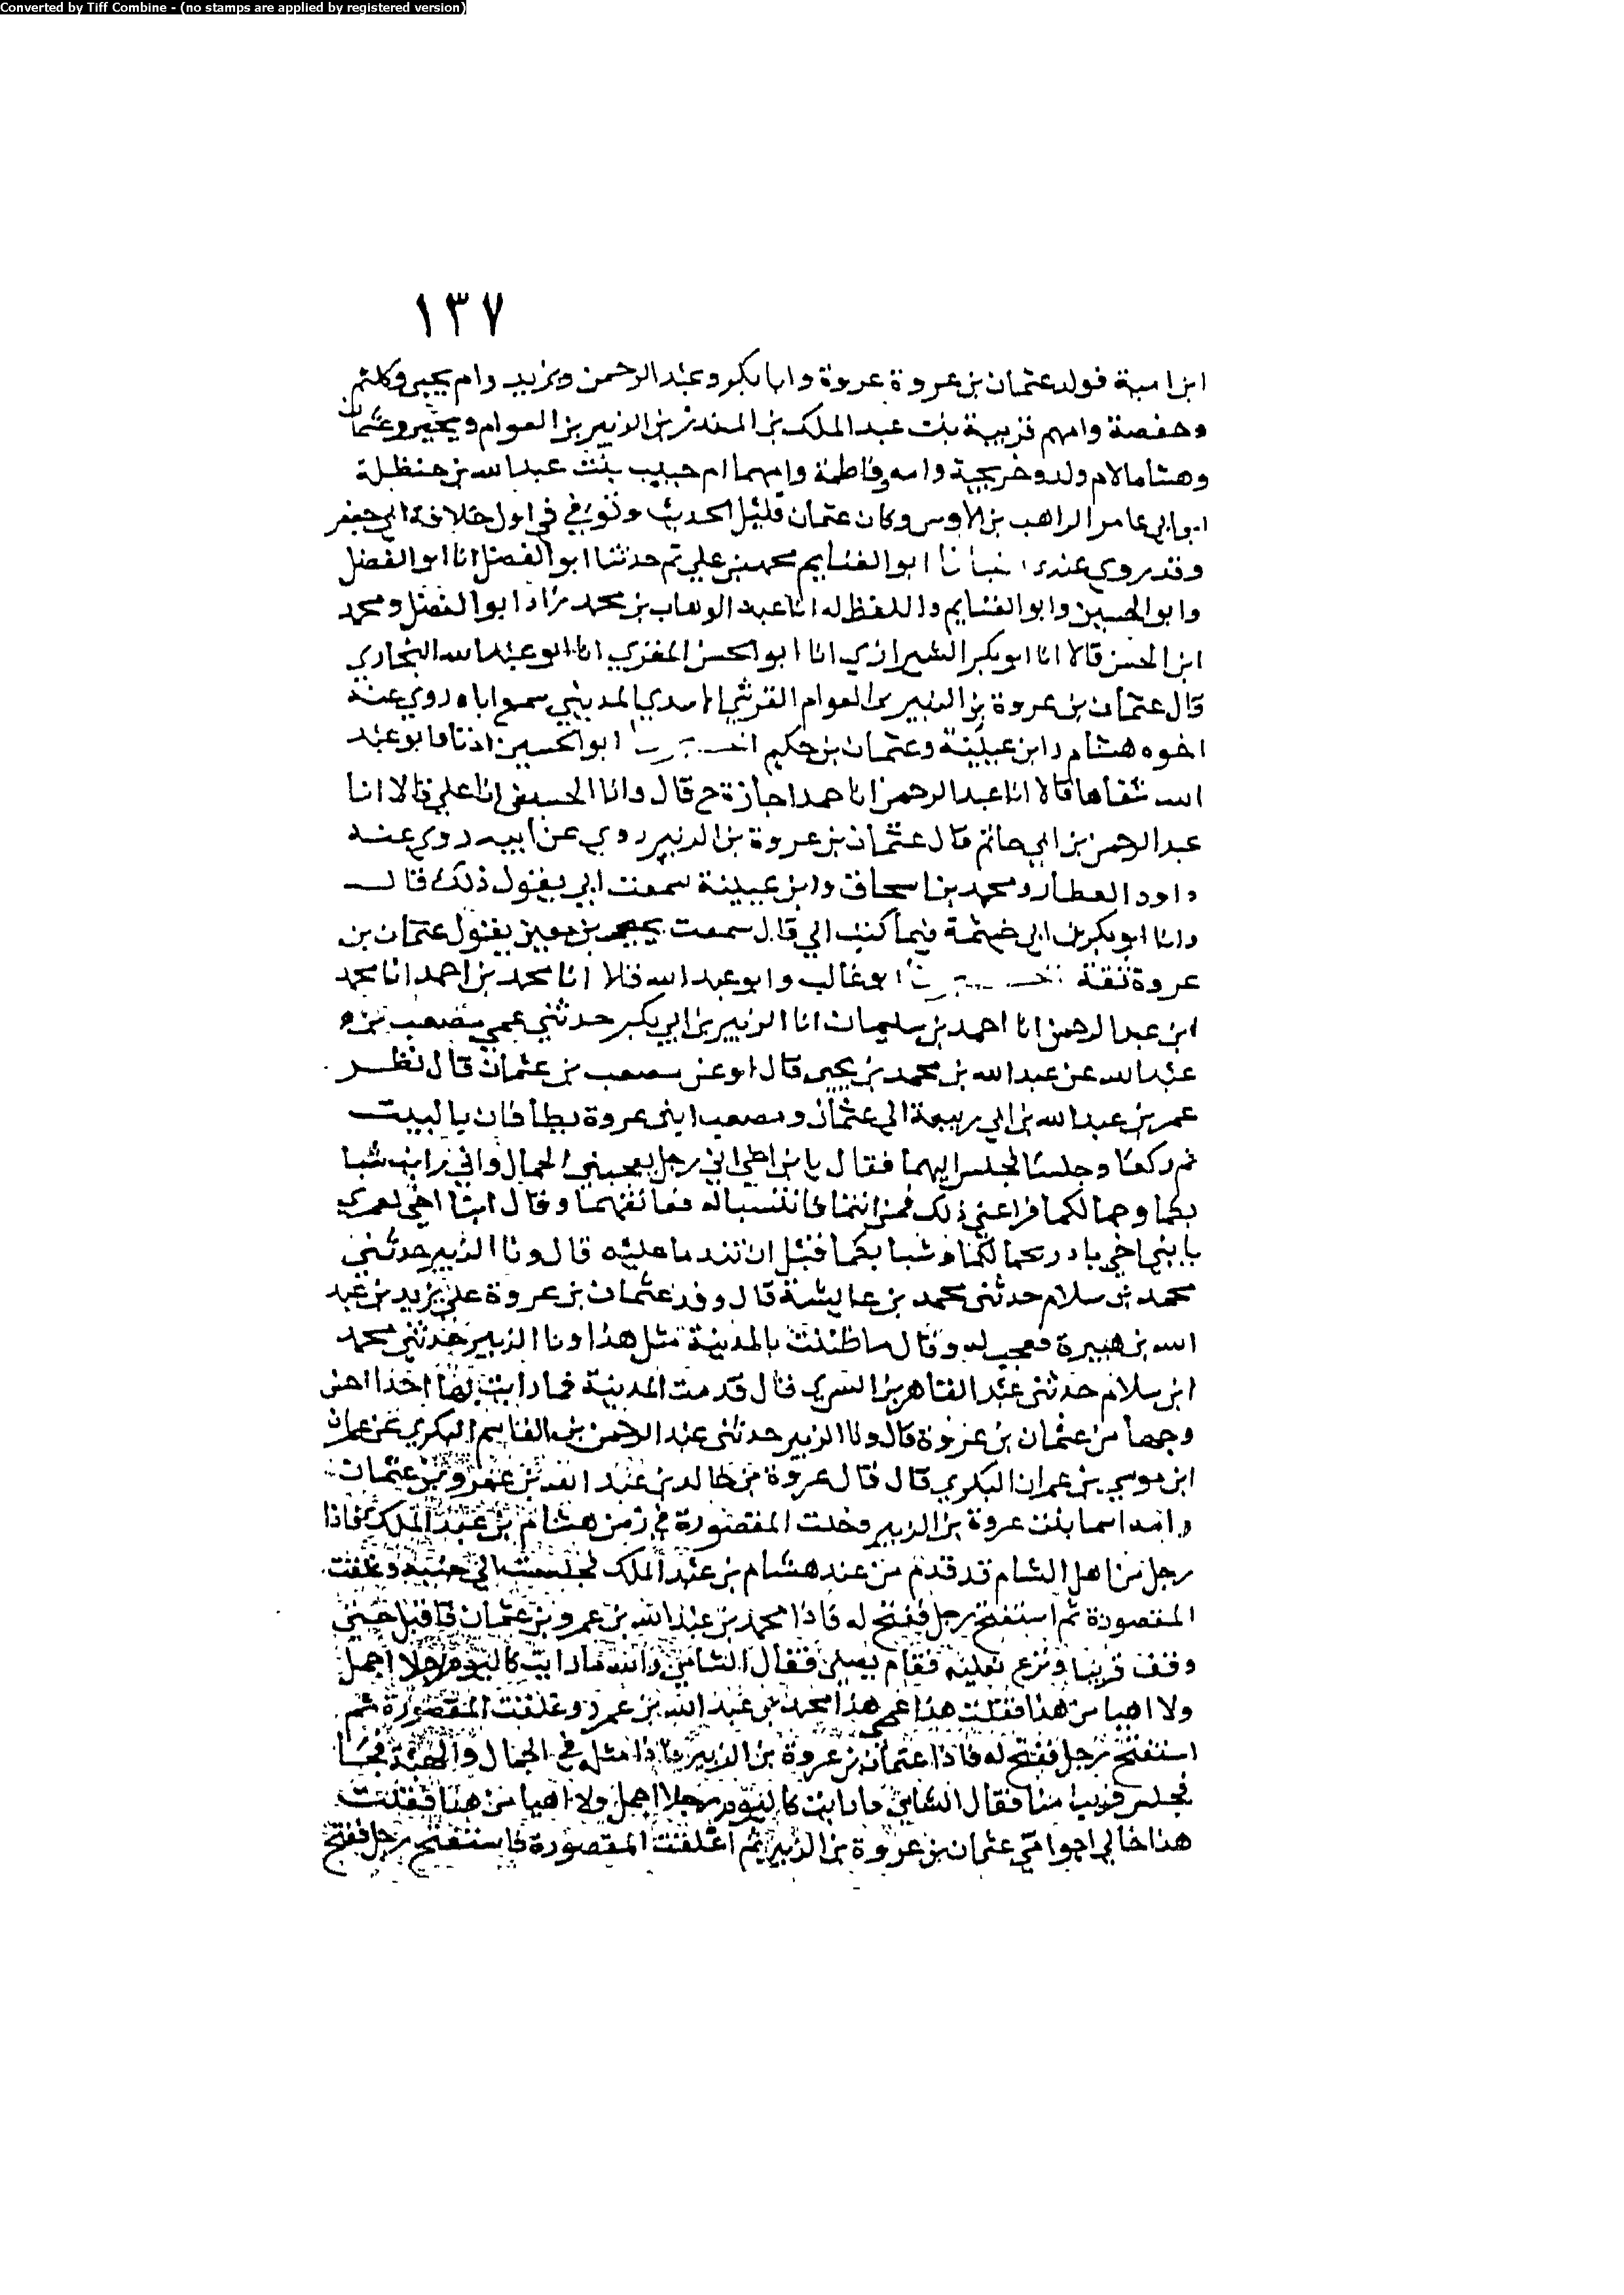 Converted by Tiff Combine - (no stamps are applied by registered version)
١٣٧
ابن امية فولد عثمان بن عروة عروة وابا بكر وعبد الرحمن ويزيد وام يحيى وكلثم
وحفصة وامهم قريبة بنت عبد الملك بن المنذر بن الزبير بن العوام ويحيى وعثمان
وهشاما لام ولد وخديجة وامه وفاطمة وامهما ام حبيب بنت عبد الله بن حنظلة
ابو ابي عامر الراهب بن الاوس وكان عثمان قليل الحديث وتوفي في اول خلافة ابي جعفر
وقد روي عنه انبانا ابو الغنايم محمد بن علي ثم حدثنا ابو الفضل انا ابو الفضل
وابو الحسين وابو الغنايم واللفظ له انا عبد الوهاب بن محمد زاد ابو الفضل ومحمد
ابن الحسن قالا انا ابو بكر الشيرازي انا ابو الحسن المقري انا ابو عبد الله البخاري
قال عثمان بن عروة بن الزبير بن العوام القرشي الاسدي المديني سمع اباه روي عنه
اخوه هشام وابن عيينة وعثمان بن حكيم اخبرنا ابو الحسين اذنا وابو عبد
الله شفاها قالا انا عبد الرحمن انا حمد اجازة ح قال وانا الحسين انا علي قالا انا
عبد الرحمن بن ابي حاتم قال عثمان بن عروة بن الزبير روي عن ابيه روي عنه
داود العطار ومحمد بن اسحاق وابن عيينة سمعت ابي يقول ذلك قال
وانا ابو بكر بن ابي خيثمة فيما كتب الي قال سمعت يحيى بن معين يقول عثمان بن
عروة ثقة اخبرنا ابو غالب وابو عبد الله قالا انا محمد بن احمد انا محمد
ابن عبد الرحمن انا احمد بن سليمان انا الزبير بن ابي بكر حدثني عمي مصعب بن
عبد الله عن عبد الله بن محمد بن يحيى قال او عن مصعب بن عثمان قال نظر
عمر بن عبد الله بن ابي ربيعة الى عثمان ومصعب ابني عروة يطوفان بالبيت
ثم ركعا وجلسا فجلس اليهما فقال يا ابني اخي اني رجل يعجبني الجمال واني رايت شبا
بكما وجمالكما فراعني ذلك فمن انتما فانتسبا له فعانقهما وقال ابنا اخي لعمري
يا بني اخي بادر بجمالكما وشبابكما قبل ان تندما عليه قال ونا الزبير حدثني
محمد بن سلام حدثني محمد بن عايشة قال وفد عثمان بن عروة على يزيد بن عبد
الله بن هبيرة فعجب له وقال ما ظننت بالمدينة مثل هذا ونا الزبير حدثني محمد
ابن سلام حدثني عبد القاهر بن السري قال قدمت المدينة فما رايت بها احدا احسن
وجها من عثمان بن عروة قال ونا الزبير حدثني عبد الرحمن بن القاسم البكري عن عمران
ابن موسى بن عمران البكري قال قال عروة بن خالد بن عبد الله بن عمرو بن عثمان
وامه اسما بنت عروة بن الزبير دخلت المقصورة في زمن هشام بن عبد الملك فاذا
رجل من اهل الشام قد قدم من عند هشام بن عبد الملك فجلست الى جنبه وغلقت
المقصورة ثم استفتح رجل ففتح له فاذا محمد بن عبد الله بن عمرو بن عثمان فاقبل حتى
وقف قريبا ونزع نعليه فقام يصلي فقال الشامي والله ما رايت كاليوم رجلا اجمل
ولا اهيا من هذا فقلت هذا عمي هذا محمد بن عبد الله بن عمرو وغلقت المقصورة ثم
استفتح رجل ففتح له فاذا عثمان بن عروة بن الزبير فاذا مثله في الجمال والهيئة فجا
فجلس قريبا منا فقال الشامي ما رايت كاليوم رجلا اجمل ولا اهيا من هذا فقلت
هذا خالي اخو امي عثمان بن عروة بن الزبير ثم اغلقت المقصورة فاستفتح رجل ففتح